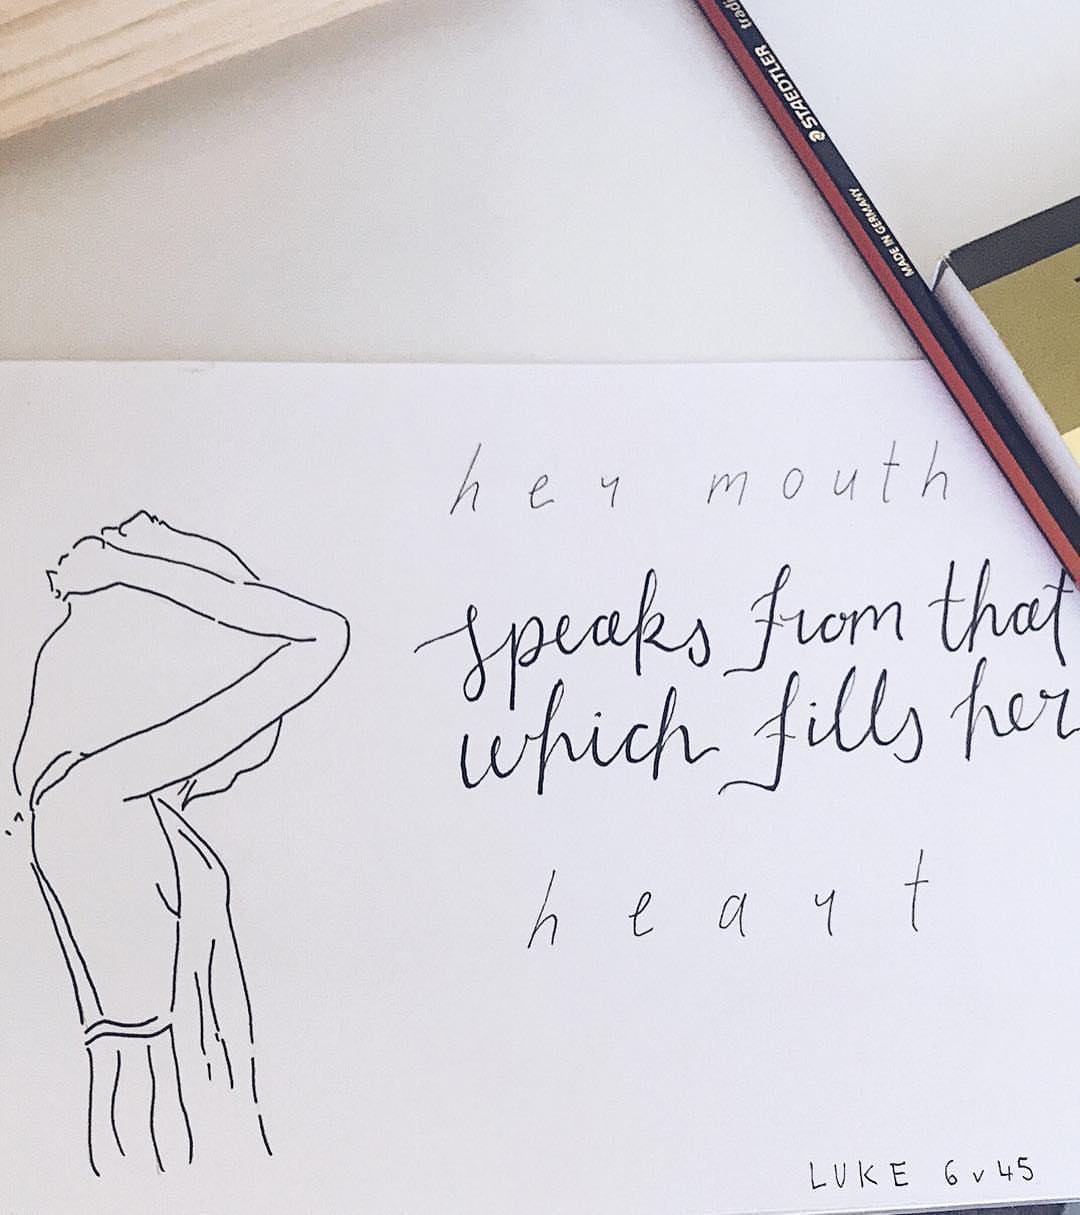 tradi
STAEDTLER
MADE IN GERMANY
her mouth
speaks from that
which fills her
heart
LUKE 6 v 45